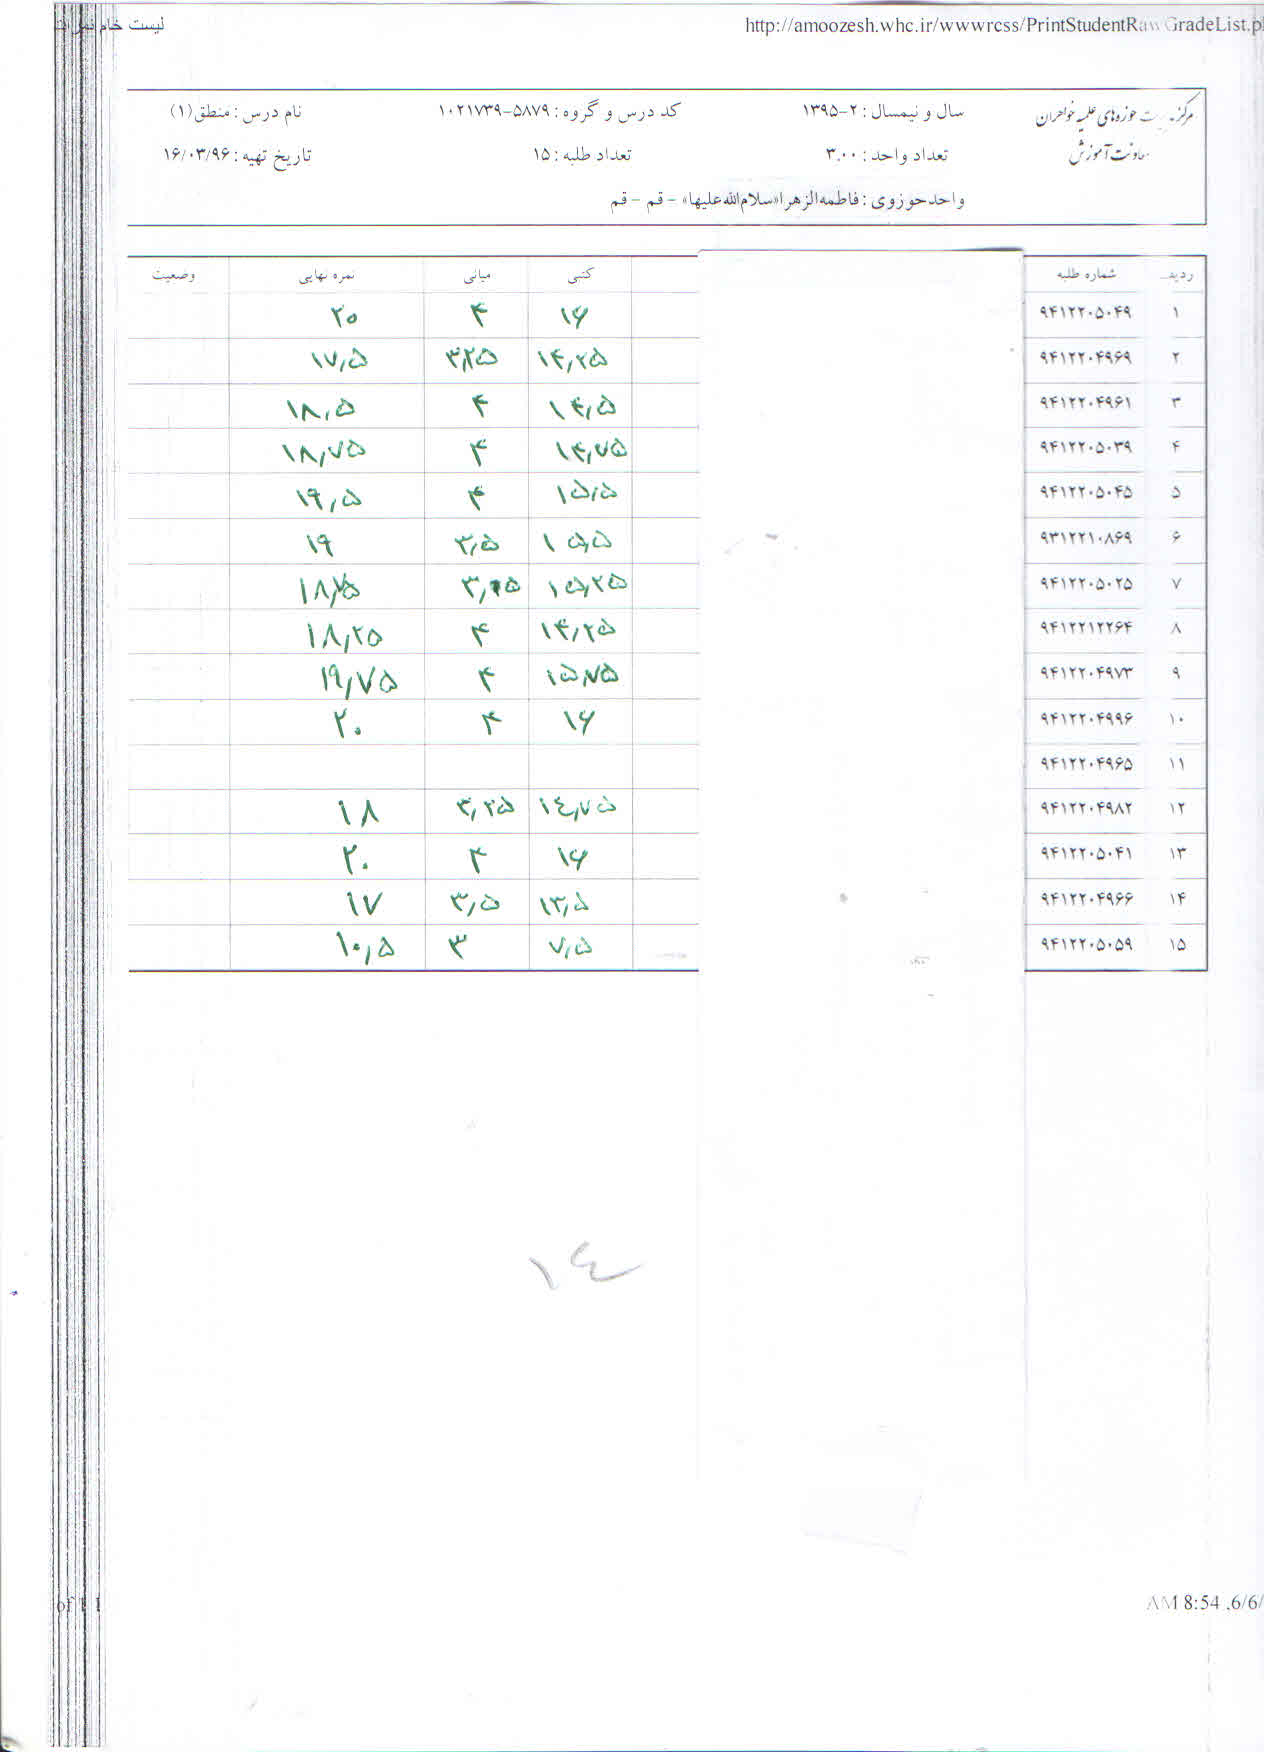 لیست خام نمرات http://amoozesh.whc.ir/wwwrcss/PrintStudentRawGradeList.p
مرکز مدیریت حوزه‌های علمیه خواهران سال و نیمسال : ۲-۱۳۹۵ کد درس و گروه : ۵۸۷۹-۱۰۲۱۷۳۹ نام درس : منطق(۱)
معاونت آموزش تعداد واحد : ۳.۰۰ تعداد طلبه : ۱۵ تاریخ تهیه : ۱۶/۰۳/۹۶
واحدحوزوی : فاطمه‌الزهرا«سلام‌الله‌علیها» - قم - قم
ردیف شماره طلبه کتبی میانی نمره نهایی وضعیت
۱ ۹۴۱۲۲۰۵۰۴۹ ۱۶ ۴ ۲۰
۲ ۹۴۱۲۲۰۴۹۶۹ ۱۴,۲۵ ۳,۲۵ ۱۷,۵
۳ ۹۴۱۲۲۰۴۹۶۱ ۱۴,۵ ۴ ۱۸,۵
۴ ۹۴۱۲۲۰۵۰۳۹ ۱۴,۷۵ ۴ ۱۸,۷۵
۵ ۹۴۱۲۲۰۵۰۴۵ ۱۵,۵ ۴ ۱۹,۵
۶ ۹۳۱۲۲۱۰۸۶۹ ۱۵,۵ ۳,۵ ۱۹
۷ ۹۴۱۲۲۰۵۰۲۵ ۱۵,۲۵
۸ ۹۴۱۲۲۱۲۲۶۴ ۱۴,۲۵ ۴ ۱۸,۲۵
۹ ۹۴۱۲۲۰۴۹۷۳ ۱۵,۷۵ ۴ ۱۹,۷۵
۱۰ ۹۴۱۲۲۰۴۹۹۶ ۱۶ ۴ ۲۰
۱۱ ۹۴۱۲۲۰۴۹۶۵
۱۲ ۹۴۱۲۲۰۴۹۸۲ ۱۴,۷۵ ۳,۲۵ ۱۸
۱۳ ۹۴۱۲۲۰۵۰۴۱ ۱۶ ۴ ۲۰
۱۴ ۹۴۱۲۲۰۴۹۶۶ ۱۳,۵ ۳,۵ ۱۷
۱۵ ۹۴۱۲۲۰۵۰۵۹ ۷,۵ ۳ ۱۰,۵
۱۴
of 1 1 AM 8:54 ,6/6/